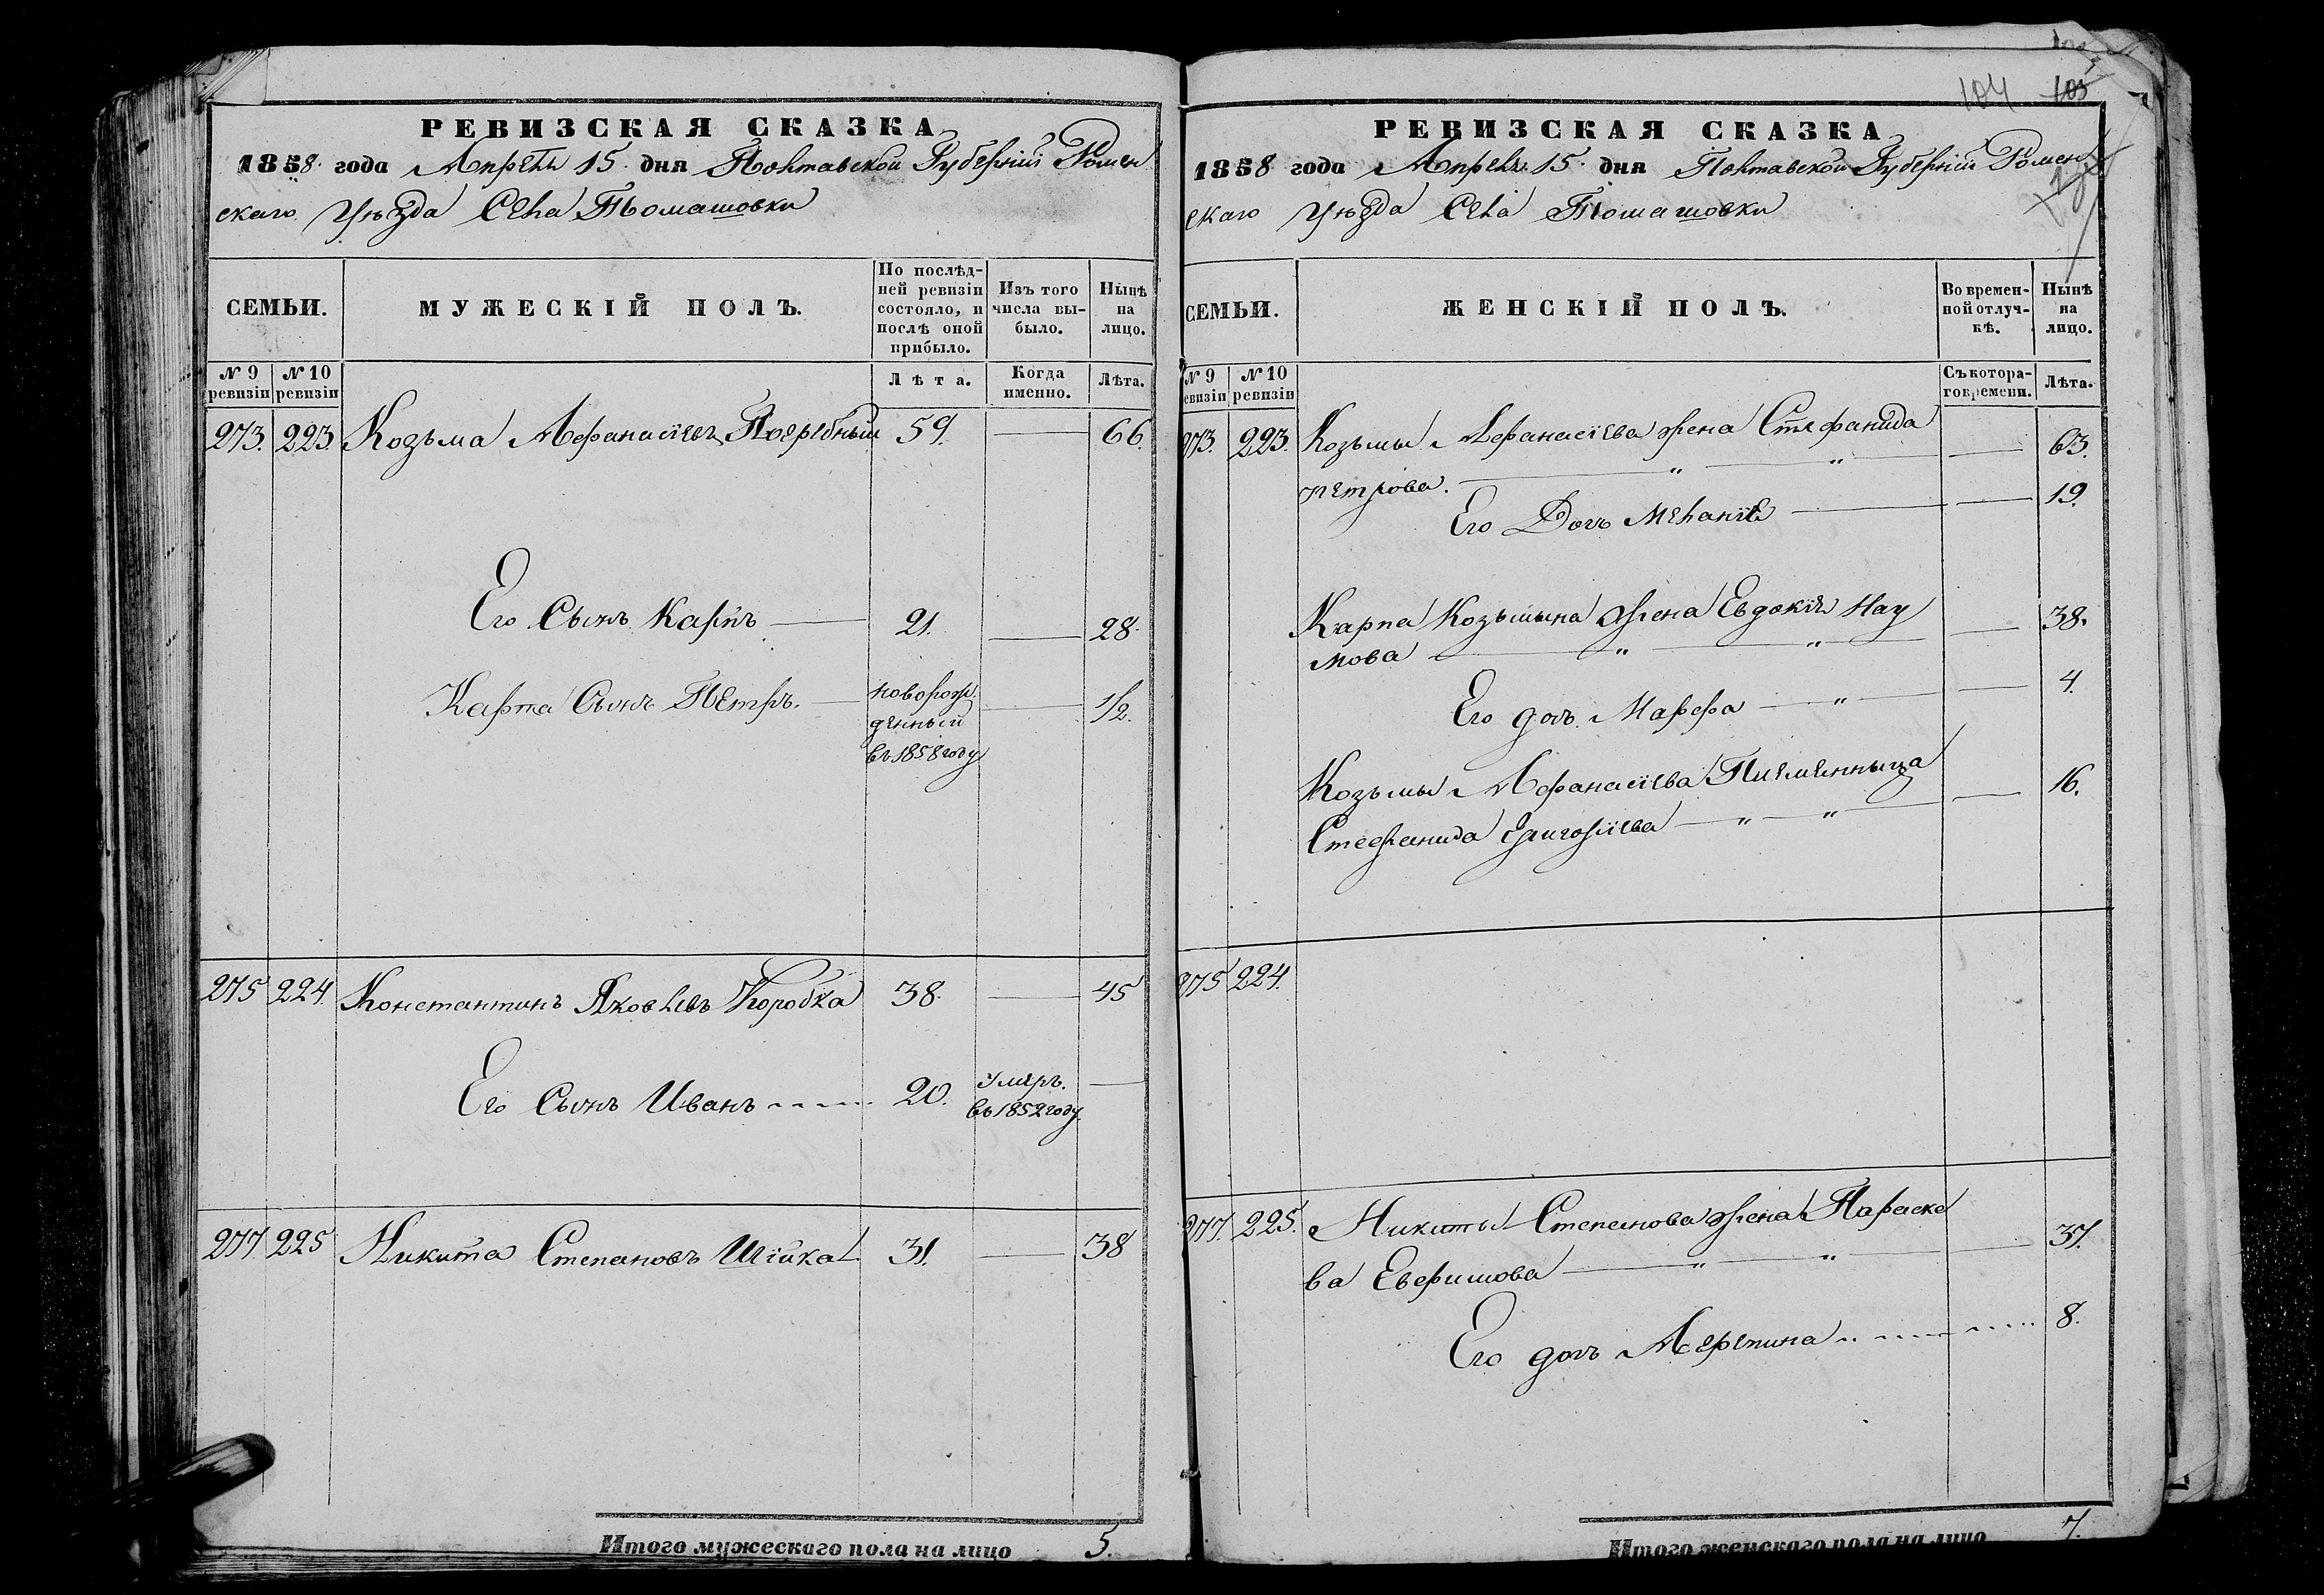 РЕВИЗСКАЯ СКАЗКА
1858 года Апреля 15 дня Полтавской Губерніи Ромен
скаго Уѣзда Села Томашовки
СЕМЬИ.
МУЖЕСКІЙ ПОЛЪ.
По послѣд-
ней ревизіи
состояло, и
послѣ оной
прибыло.
Изъ того
числа вы-
было.
Нынѣ
на
лицо.
№ 9
ревизіи
№ 10
ревизіи
Лѣта.
Когда
именно.
Лѣта.
273. 223. Козьма Афанасіевъ Погребный 59. 66.
Его Сынъ Карпъ 21. 28.
Карпа Сынъ Петръ. новорож
денный
въ 1858 году 1/2.
275 224. Константинъ Яковлевъ Коробка 38. 45
Его Сынъ Иванъ 20. умеръ.
въ 1852 году
277. 225 Никита Степановъ Шійка 31. 38
Итого мужескаго пола на лицо 5.
104 105
РЕВИЗСКАЯ СКАЗКА
1858 года Апреля 15 дня Полтавской Губерніи Ромен
скаго Уѣзда Села Томашовки
СЕМЬИ.
ЖЕНСКІЙ ПОЛЪ.
Во времен-
ной отлуч-
кѣ.
Нынѣ
на
лицо.
№ 9
евизіи
№ 10
ревизіи
Съ котора-
го времени.
Лѣта.
273. 223. Козьмы Афанасіева жена Стефанида
Петрова. 63.
Его Дочь Меланія 19.
Карпа Козьмина жена Евдокія Нау
мова 38.
Его дочь Марфа 4.
Козьмы Афанасіева Племянныца
Стефанида Григоріева 16.
275 224.
277. 225. Никиты Степанова жена Параске
ва Евфимова 37.
Его дочь Агрепина 8.
Итого женскаго пола на лицо 7.